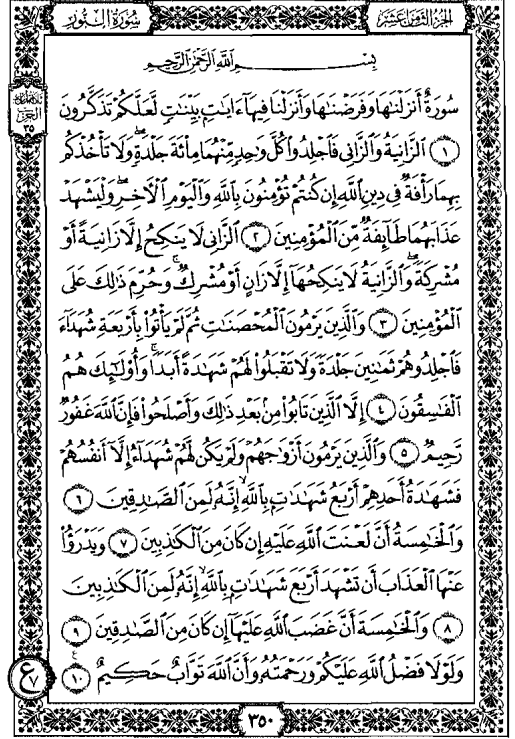 الجزء الثامن عشر
سُورَةُ النُّور
بِسْمِ ٱللَّهِ ٱلرَّحْمَٰنِ ٱلرَّحِيمِ
سُورَةٌ أَنزَلْنَٰهَا وَفَرَضْنَٰهَا وَأَنزَلْنَا فِيهَآ ءَايَٰتٍۭ بَيِّنَٰتٍ لَّعَلَّكُمْ تَذَكَّرُونَ
١ ٱلزَّانِيَةُ وَٱلزَّانِى فَٱجْلِدُوا۟ كُلَّ وَٰحِدٍ مِّنْهُمَا مِا۟ئَةَ جَلْدَةٍ ۖ وَلَا تَأْخُذْكُم
بِهِمَا رَأْفَةٌ فِى دِينِ ٱللَّهِ إِن كُنتُمْ تُؤْمِنُونَ بِٱللَّهِ وَٱلْيَوْمِ ٱلْءَاخِرِ ۖ وَلْيَشْهَدْ
عَذَابَهُمَا طَآئِفَةٌ مِّنَ ٱلْمُؤْمِنِينَ ٢ ٱلزَّانِى لَا يَنكِحُ إِلَّا زَانِيَةً أَوْ
مُشْرِكَةً وَٱلزَّانِيَةُ لَا يَنكِحُهَآ إِلَّا زَانٍ أَوْ مُشْرِكٌ ۚ وَحُرِّمَ ذَٰلِكَ عَلَى
ٱلْمُؤْمِنِينَ ٣ وَٱلَّذِينَ يَرْمُونَ ٱلْمُحْصَنَٰتِ ثُمَّ لَمْ يَأْتُوا۟ بِأَرْبَعَةِ شُهَدَآءَ
فَٱجْلِدُوهُمْ ثَمَٰنِينَ جَلْدَةً وَلَا تَقْبَلُوا۟ لَهُمْ شَهَٰدَةً أَبَدًا ۚ وَأُو۟لَٰٓئِكَ هُمُ
ٱلْفَٰسِقُونَ ٤ إِلَّا ٱلَّذِينَ تَابُوا۟ مِنۢ بَعْدِ ذَٰلِكَ وَأَصْلَحُوا۟ فَإِنَّ ٱللَّهَ غَفُورٌ
رَّحِيمٌ ٥ وَٱلَّذِينَ يَرْمُونَ أَزْوَٰجَهُمْ وَلَمْ يَكُن لَّهُمْ شُهَدَآءُ إِلَّآ أَنفُسُهُمْ
فَشَهَٰدَةُ أَحَدِهِمْ أَرْبَعُ شَهَٰدَٰتٍۭ بِٱللَّهِ ۙ إِنَّهُۥ لَمِنَ ٱلصَّٰدِقِينَ ٦
وَٱلْخَٰمِسَةُ أَنَّ لَعْنَتَ ٱللَّهِ عَلَيْهِ إِن كَانَ مِنَ ٱلْكَٰذِبِينَ ٧ وَيَدْرَؤُا۟
عَنْهَا ٱلْعَذَابَ أَن تَشْهَدَ أَرْبَعَ شَهَٰدَٰتٍۭ بِٱللَّهِ ۙ إِنَّهُۥ لَمِنَ ٱلْكَٰذِبِينَ
٨ وَٱلْخَٰمِسَةَ أَنَّ غَضَبَ ٱللَّهِ عَلَيْهَآ إِن كَانَ مِنَ ٱلصَّٰدِقِينَ ٩
وَلَوْلَا فَضْلُ ٱللَّهِ عَلَيْكُمْ وَرَحْمَتُهُۥ وَأَنَّ ٱللَّهَ تَوَّابٌ حَكِيمٌ ١٠
ع ٧
٣٥٠